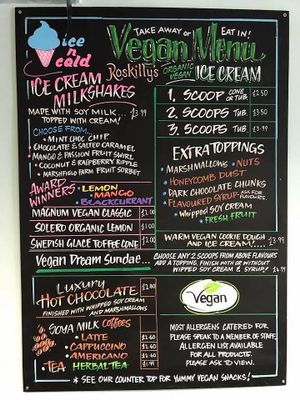 ice n cold
TAKE AWAY or EAT IN!
Vegan Menu
Roskilly's ORGANIC VEGAN ICE CREAM
ICE CREAM
MILKSHAKES
MADE WITH SOY MILK...
TOPPED WITH CREAM! £3.99
CHOOSE FROM...
• MINT CHOC CHIP
• CHOCOLATE & SALTED CARAMEL
• MANGO & PASSION FRUIT SWIRL
• COCONUT & RASPBERRY RIPPLE
• MARSHFIELD FARM FRUIT SORBET
AWARD WINNERS
• LEMON
• MANGO
• BLACKCURRANT
MAGNUM VEGAN CLASSIC
SOLERO ORGANIC LEMON £1.00
SWEDISH GLACE TOFFEE CONE
Vegan Dream Sundae...
1. SCOOP CONE or TUB. £2.50
2. SCOOPS TUB.
3. SCOOPS TUB.
EXTRA TOPPINGS
MARSHMALLOWS • NUTS
HONEYCOMB DUST
• DARK CHOCOLATE CHUNKS
• FLAVOURED SYRUP ASK FOR FLAVOURS
• WHIPPED SOY CREAM
• FRESH FRUIT
WARM VEGAN COOKIE DOUGH
AND ICE CREAM!....
CHOOSE ANY 2 SCOOPS FROM ABOVE FLAVOURS
ADD A TOPPING, FINISH WITH OR WITHOUT
WHIPPED SOY CREAM & SYRUP!
Luxury
HOT CHOCOLATE
FINISHED WITH WHIPPED SOY CREAM
AND MARSHMALLOWS
SOYA MILK COFFEES
• LATTE
• CAPPUCCINO
• AMERICANO
• TEA HERBAL TEA
Vegan
MOST ALLERGENS CATERED FOR
PLEASE SPEAK TO A MEMBER OF STAFF.
ALLERGEN LIST AVAILABLE
FOR ALL PRODUCTS.
PLEASE ASK TO VIEW.
* SEE OUR COUNTER TOP FOR YUMMY VEGAN SNACKS!